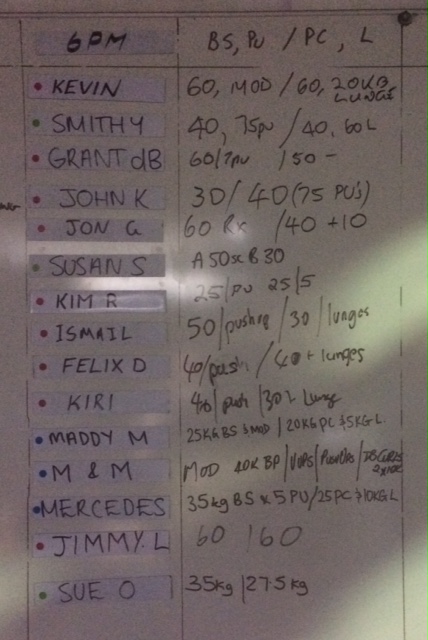 6PM BS, PU / PC, L
KEVIN 60, MOD / 60, 20KB LUNGES
SMITHY 40, 75pu / 40, 60L
GRANT dB 60/7pu / 50 -
JOHN K 30/ 40(75 PU's)
JON G 60 Rx /40 +10
SUSAN S A 50sc B 30
KIM R 25/PU 25/5
ISMAIL 50/pushup / 30 / lunges
FELIX D 40/push / 40 + lunges
KIRI 40/push /30+ Lung
MADDY M 25KG BS & MOD / 20KG PC & 5KG L
M & M MOD 40K BP / / Punches /
MERCEDES 35kg BS x 5 PU/25 PC & 10KG L
JIMMY L 60 / 60
SUE O 35kg / 27.5kg